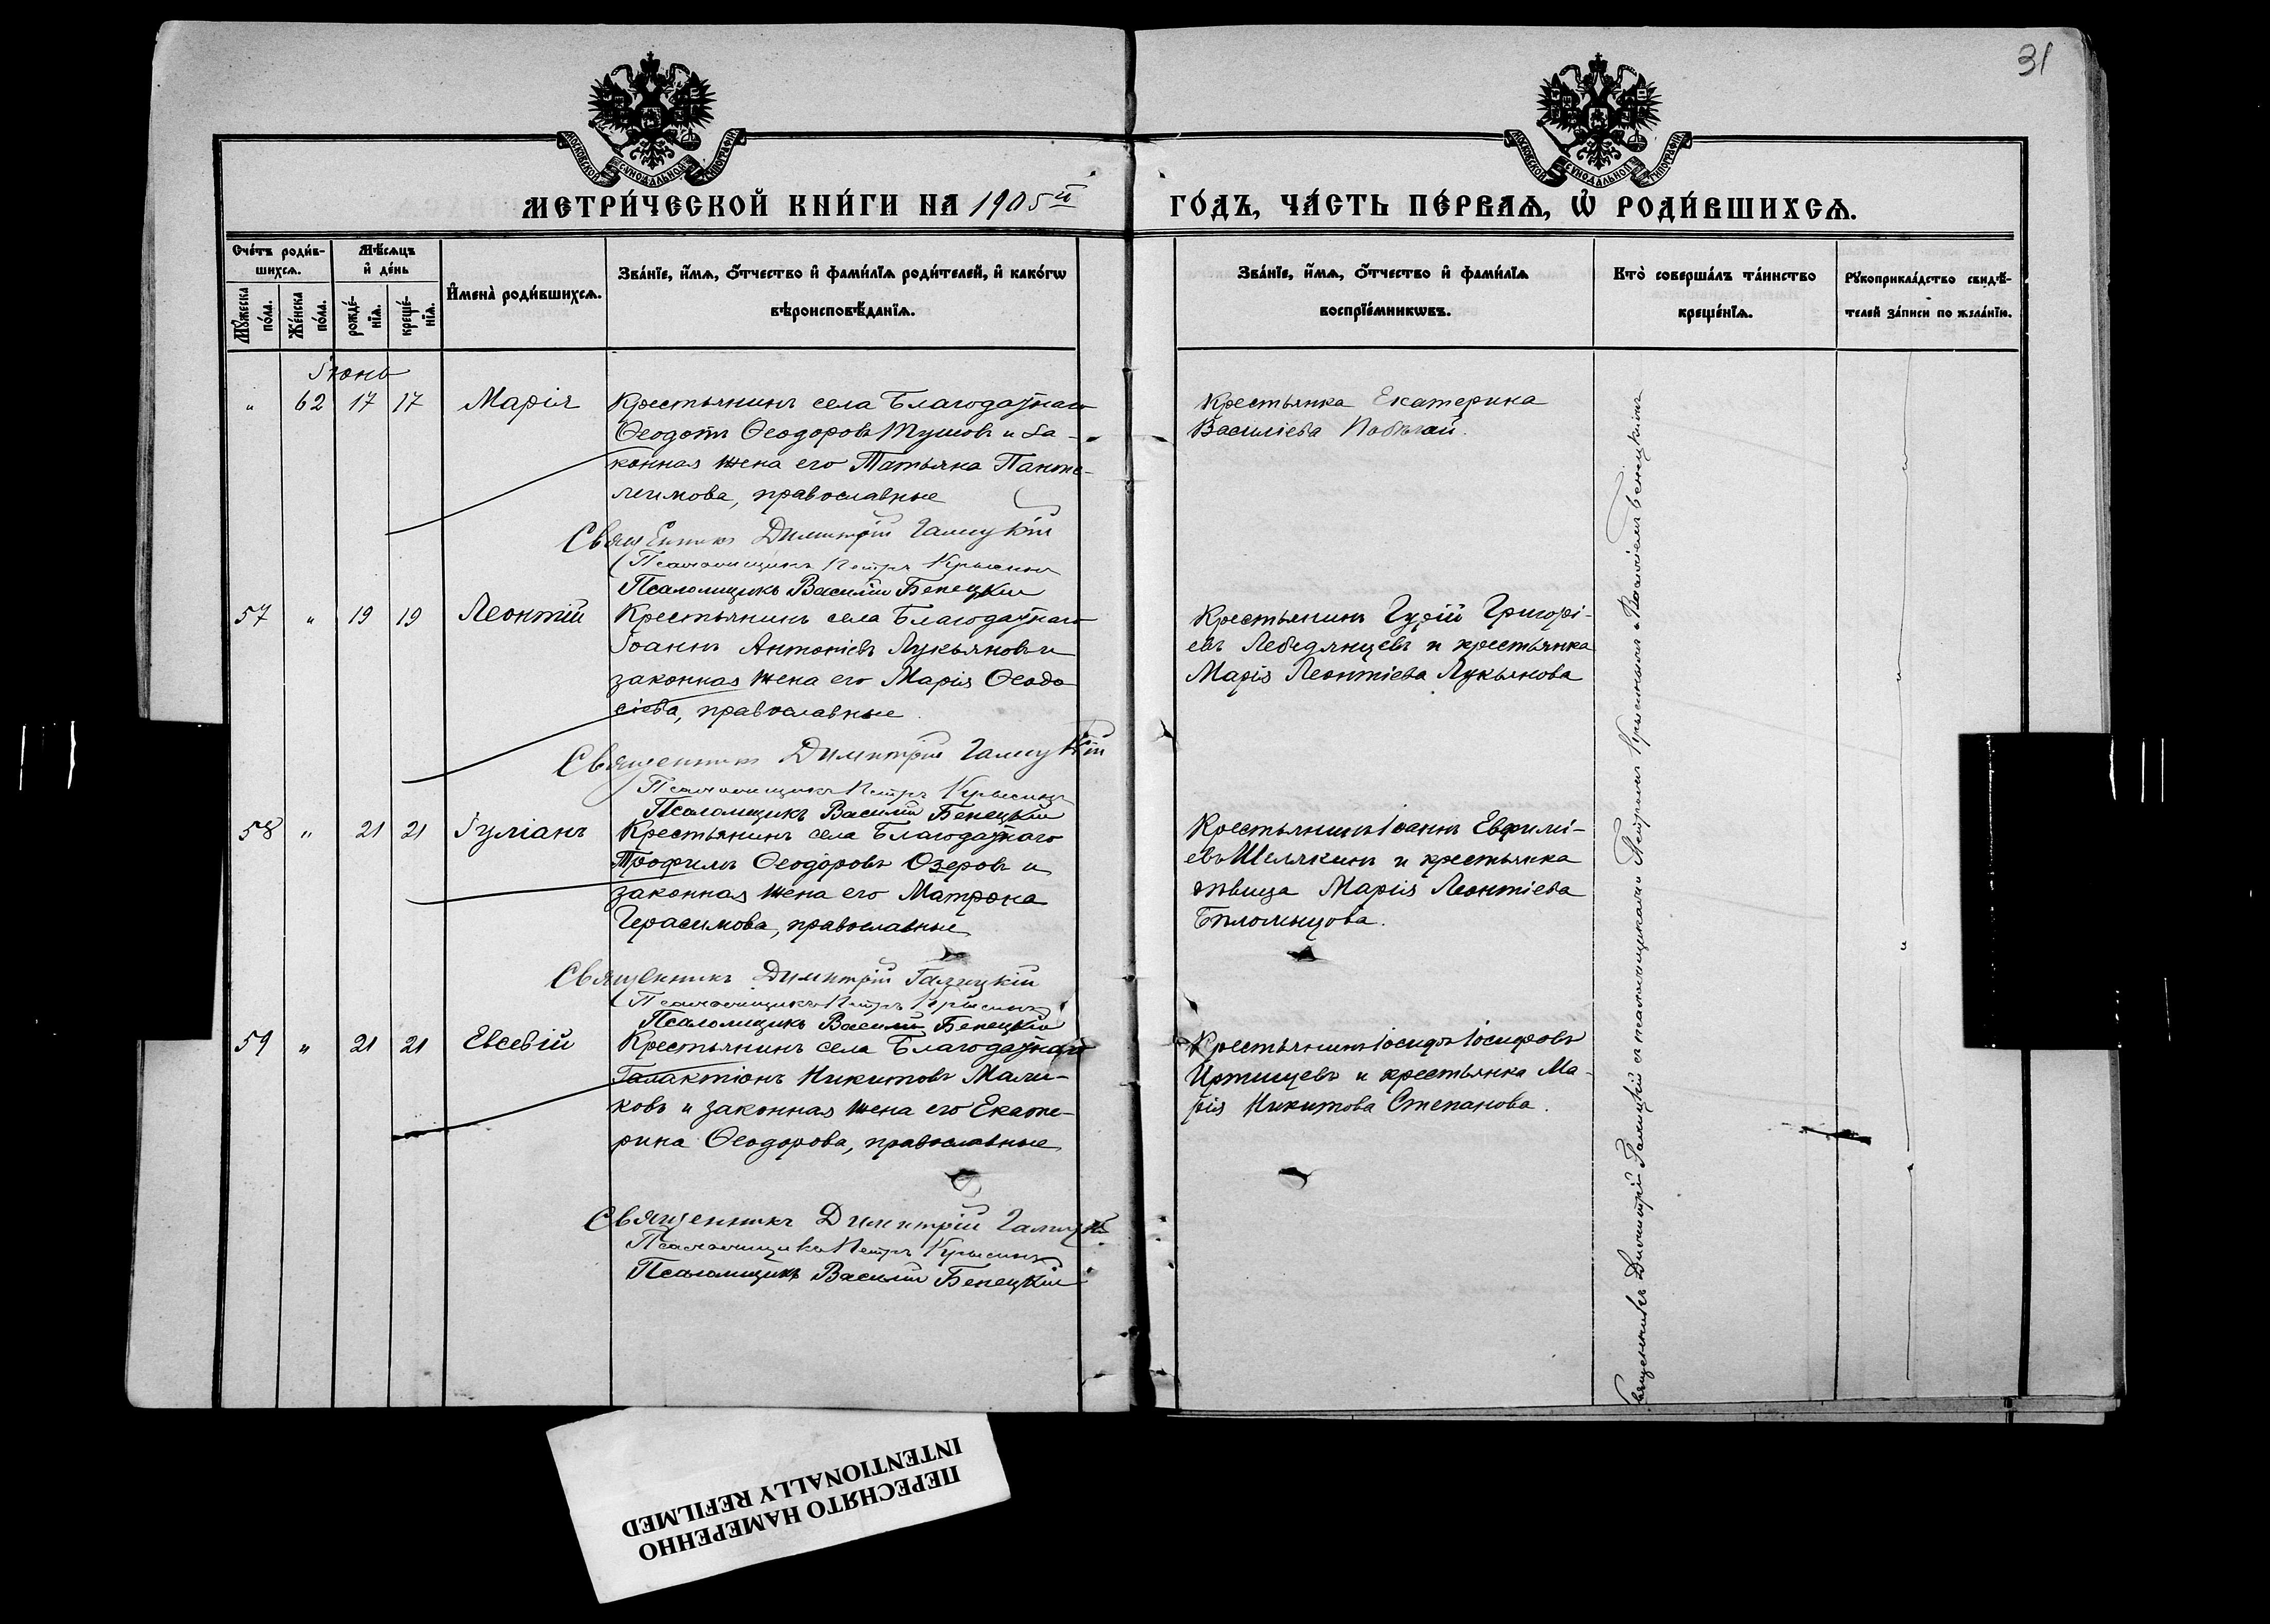 31
МОСКОВСКОЙ СѴНОДАЛЬНОЙ ТИПОГРАФІИ
МОСКОВСКОЙ СѴНОДАЛЬНОЙ ТИПОГРАФІИ
МЕТРИ́ЧЕСКОЙ КНИ́ГИ НА 1905й ГО́ДЪ, ЧА́СТЬ ПЕ́РВАѦ, Ѡ҆ РОДИ́ВШИХСѦ.
Сче́тъ роди́в-
шихсѧ.
Мꙋ́жеска
по́ла.
Же́нска
по́ла.
Мѣ́сѧцъ
и҆ де́нь
рожде́-
нїѧ.
креще́-
нїѧ.
И҆мена̀ роди́вшихсѧ.
Зва́нїе, и҆́мѧ, ѻ҆́тчество и҆ фами́лїѧ роди́телей, и҆ како́гѡ
вѣроисповѣ́данїѧ.
Зва́нїе, и҆́мѧ, ѻ҆́тчество и҆ фами́лїѧ
воспрїе́мникѡвъ.
Кто̀ соверша́лъ та́инство
креще́нїѧ.
Рꙋкоприкла́дство свидѣ́-
телей за́писи по жела́нїю.
Іюнь
" 62 17 17 Марія
Крестьянинъ села Благодатнаго
Ѳеодотъ Ѳеодоровъ Тушовъ и за-
конная жена его Татьяна Панте-
леимова, православные
Священникъ Димитрій Галицкій
Псаломщикъ Петръ Крысинъ
Псаломщикъ Василій Бенецкій
Крестьянка Екатерина
Василіева
57 " 19 19 Леонтій
Крестьянинъ села Благодатнаго
Іоаннъ Антоніевъ Лукьяновъ и
законная жена его Марія Ѳеодо
сіева, православные
Священникъ Димитрій Галицкій
Псаломщикъ Петръ Крысинъ
Псаломщикъ Василій Бенецкій
Крестьянинъ Гурій Григорі-
евъ Лебедянцевъ и крестьянка
Марія Леонтіева Лукьянова
58 " 21 21 Іуліанъ
Крестьянинъ села Благодатнаго
Трофимъ Ѳеодоровъ Озеровъ и
законная жена его Матрона
Герасимова, православные
Священникъ Димитрій Галицкій
Псаломщикъ Петръ Крысинъ
Псаломщикъ Василій Бенецкій
Крестьянинъ Іоаннъ Евфимі-
евъ Шелякинъ и крестьянка
дѣвица Марія Леонтіева
Бѣломыцова.
59 " 21 21 Евсевій
Крестьянинъ села Благодатнаго
Галактіонъ Никитовъ Мали-
ковъ и законная жена его Екате-
рина Ѳеодорова, православные
Священникъ Димитрій Галицкій
Псаломщикъ Петръ Крысинъ
Псаломщикъ Василій Бенецкій
Крестьянинъ Іосифъ Іосифовъ
Иртищевъ и крестьянка Ма-
рія Никитова Степанова.
Священникъ Димитрій Галицкій съ псаломщиками Петромъ Крысинымъ и Василіемъ Бенецкимъ
ПЕРЕСНЯТО НАМЕРЕННО
INTENTIONALLY REFILMED